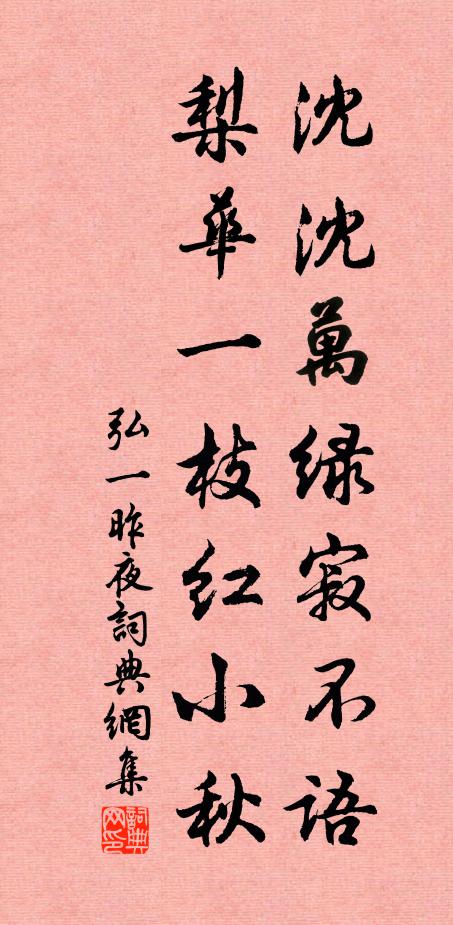 沈沈萬綠寂不語
梨華一枝紅小秋
弘一昨夜詞典網集
詞典网印